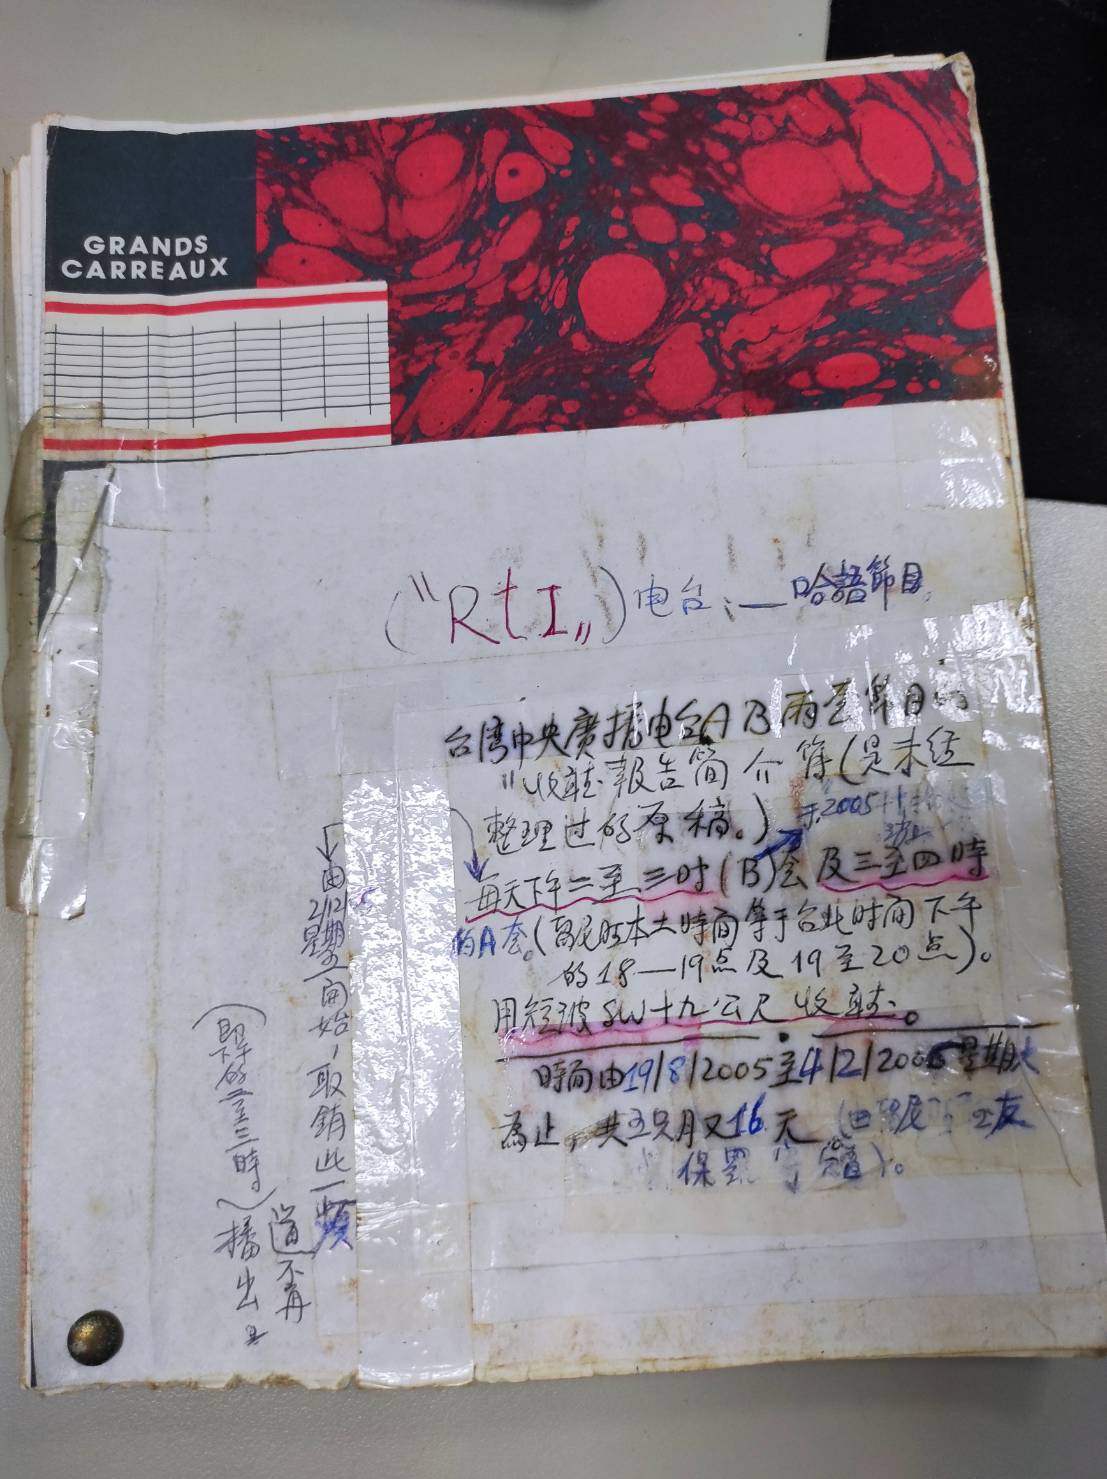 GRANDS
CARREAUX
("RtI") 电台:—哈語節目
台湾中央廣播电台A及B两套節目的
"收聽報告簡介等(是未经
整理过的原稿。)
于2005
每天下午二至三时(B)套及三至四時
的A套。(本土時间等于台北时间下午
的18—19点及19至20点)。
用短波SW十九公尺收聽。
時间由19/8/2005至4/2/2006星期六
為止,共五只月又16天
由2/12星期一開始,取銷此一頻
道不再
播出
(即下午的二至三時)